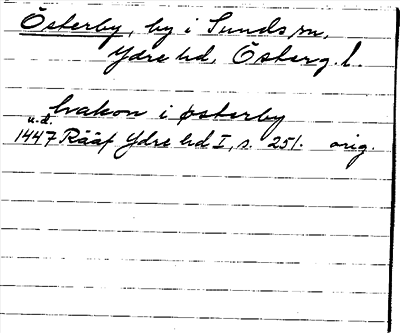 Österby, by i Sunds sn,
Ydre hd, Österg. l.
hakon i østerby
u.d.
1447 Rääf Ydre hd I, s. 251. orig.